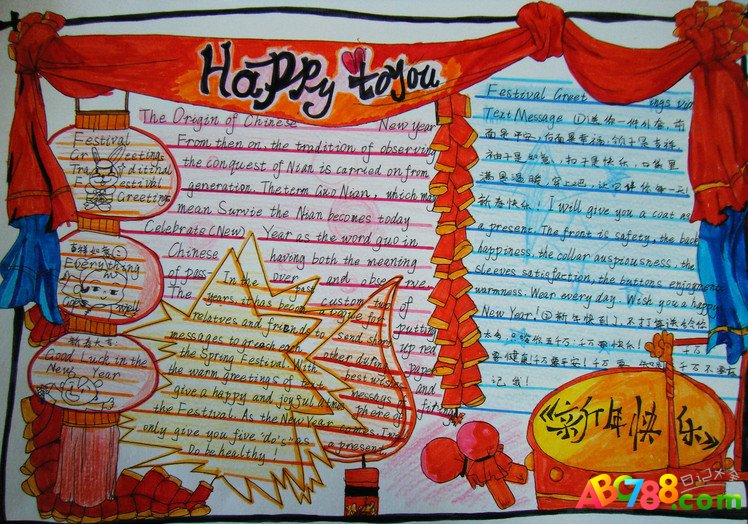 Happy to you
The Origin of Chinese New year
From then on, the tradition of observing
the conquest of Nian is carried on from
generation. Theterm Guo Nian, which may
mean Survie the Nian becomes today
Celebrate (New) Year as the word guo in
Chinese having both the meaning
of pass over and observe.
The custom of
putting
up red
paper
and
In the past
years, it has become a vogue for
relatives and friends to send short
messages to greet each other during
the Spring Festival. With best wishes
the warm greetings of
give a happy and joyful
the Festival. As the New Year comes, I
only give you five "do's" as a present
Do be healthy!
Festival
Greetings
Traditional
Festival
Greeting
百事如意:
Everything
Goes well
新春大吉:
Good Luck in the
New Year
Festival Greetings via
Text Message ①送你一件外套,前
面是平安,后面是幸福,领子是吉祥,
袖子是如意,扣子是快乐,口袋里
满是温暖,穿上吧,让它伴你每一天!
新春快乐! I will give you a coat as
a present. The front is safety, the back
happiness, the collar auspiciousness, the
sleeves satisfaction, the buttons enjoyment
warmness. Wear every day. Wish you a happy
New Year! ②新年快到了,不打算送给你
太多,只给你五千万:千万要快乐!千万
要健康!千万要平安!千万要 千万不要忘
记我!
《新年快乐》
日记大全
ABC788.com